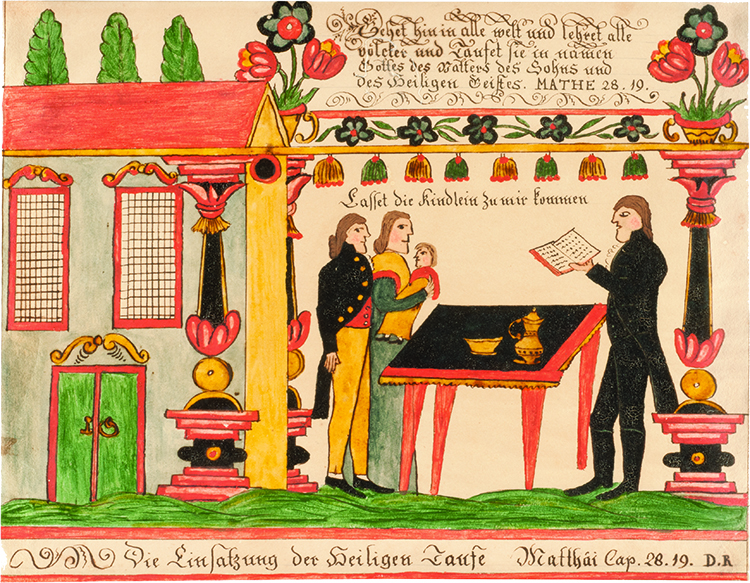 Gehet hin in alle welt und lehret alle
völcker und Taufet sie in namen
Gottes des Vatters des Sohns und
des Heiligen Geistes. MATHE 28.19.
Lasset die Kindlein zu mir kommen
Die Einsatzung der Heiligen Taufe Matthäi Cap. 28.19. D.R